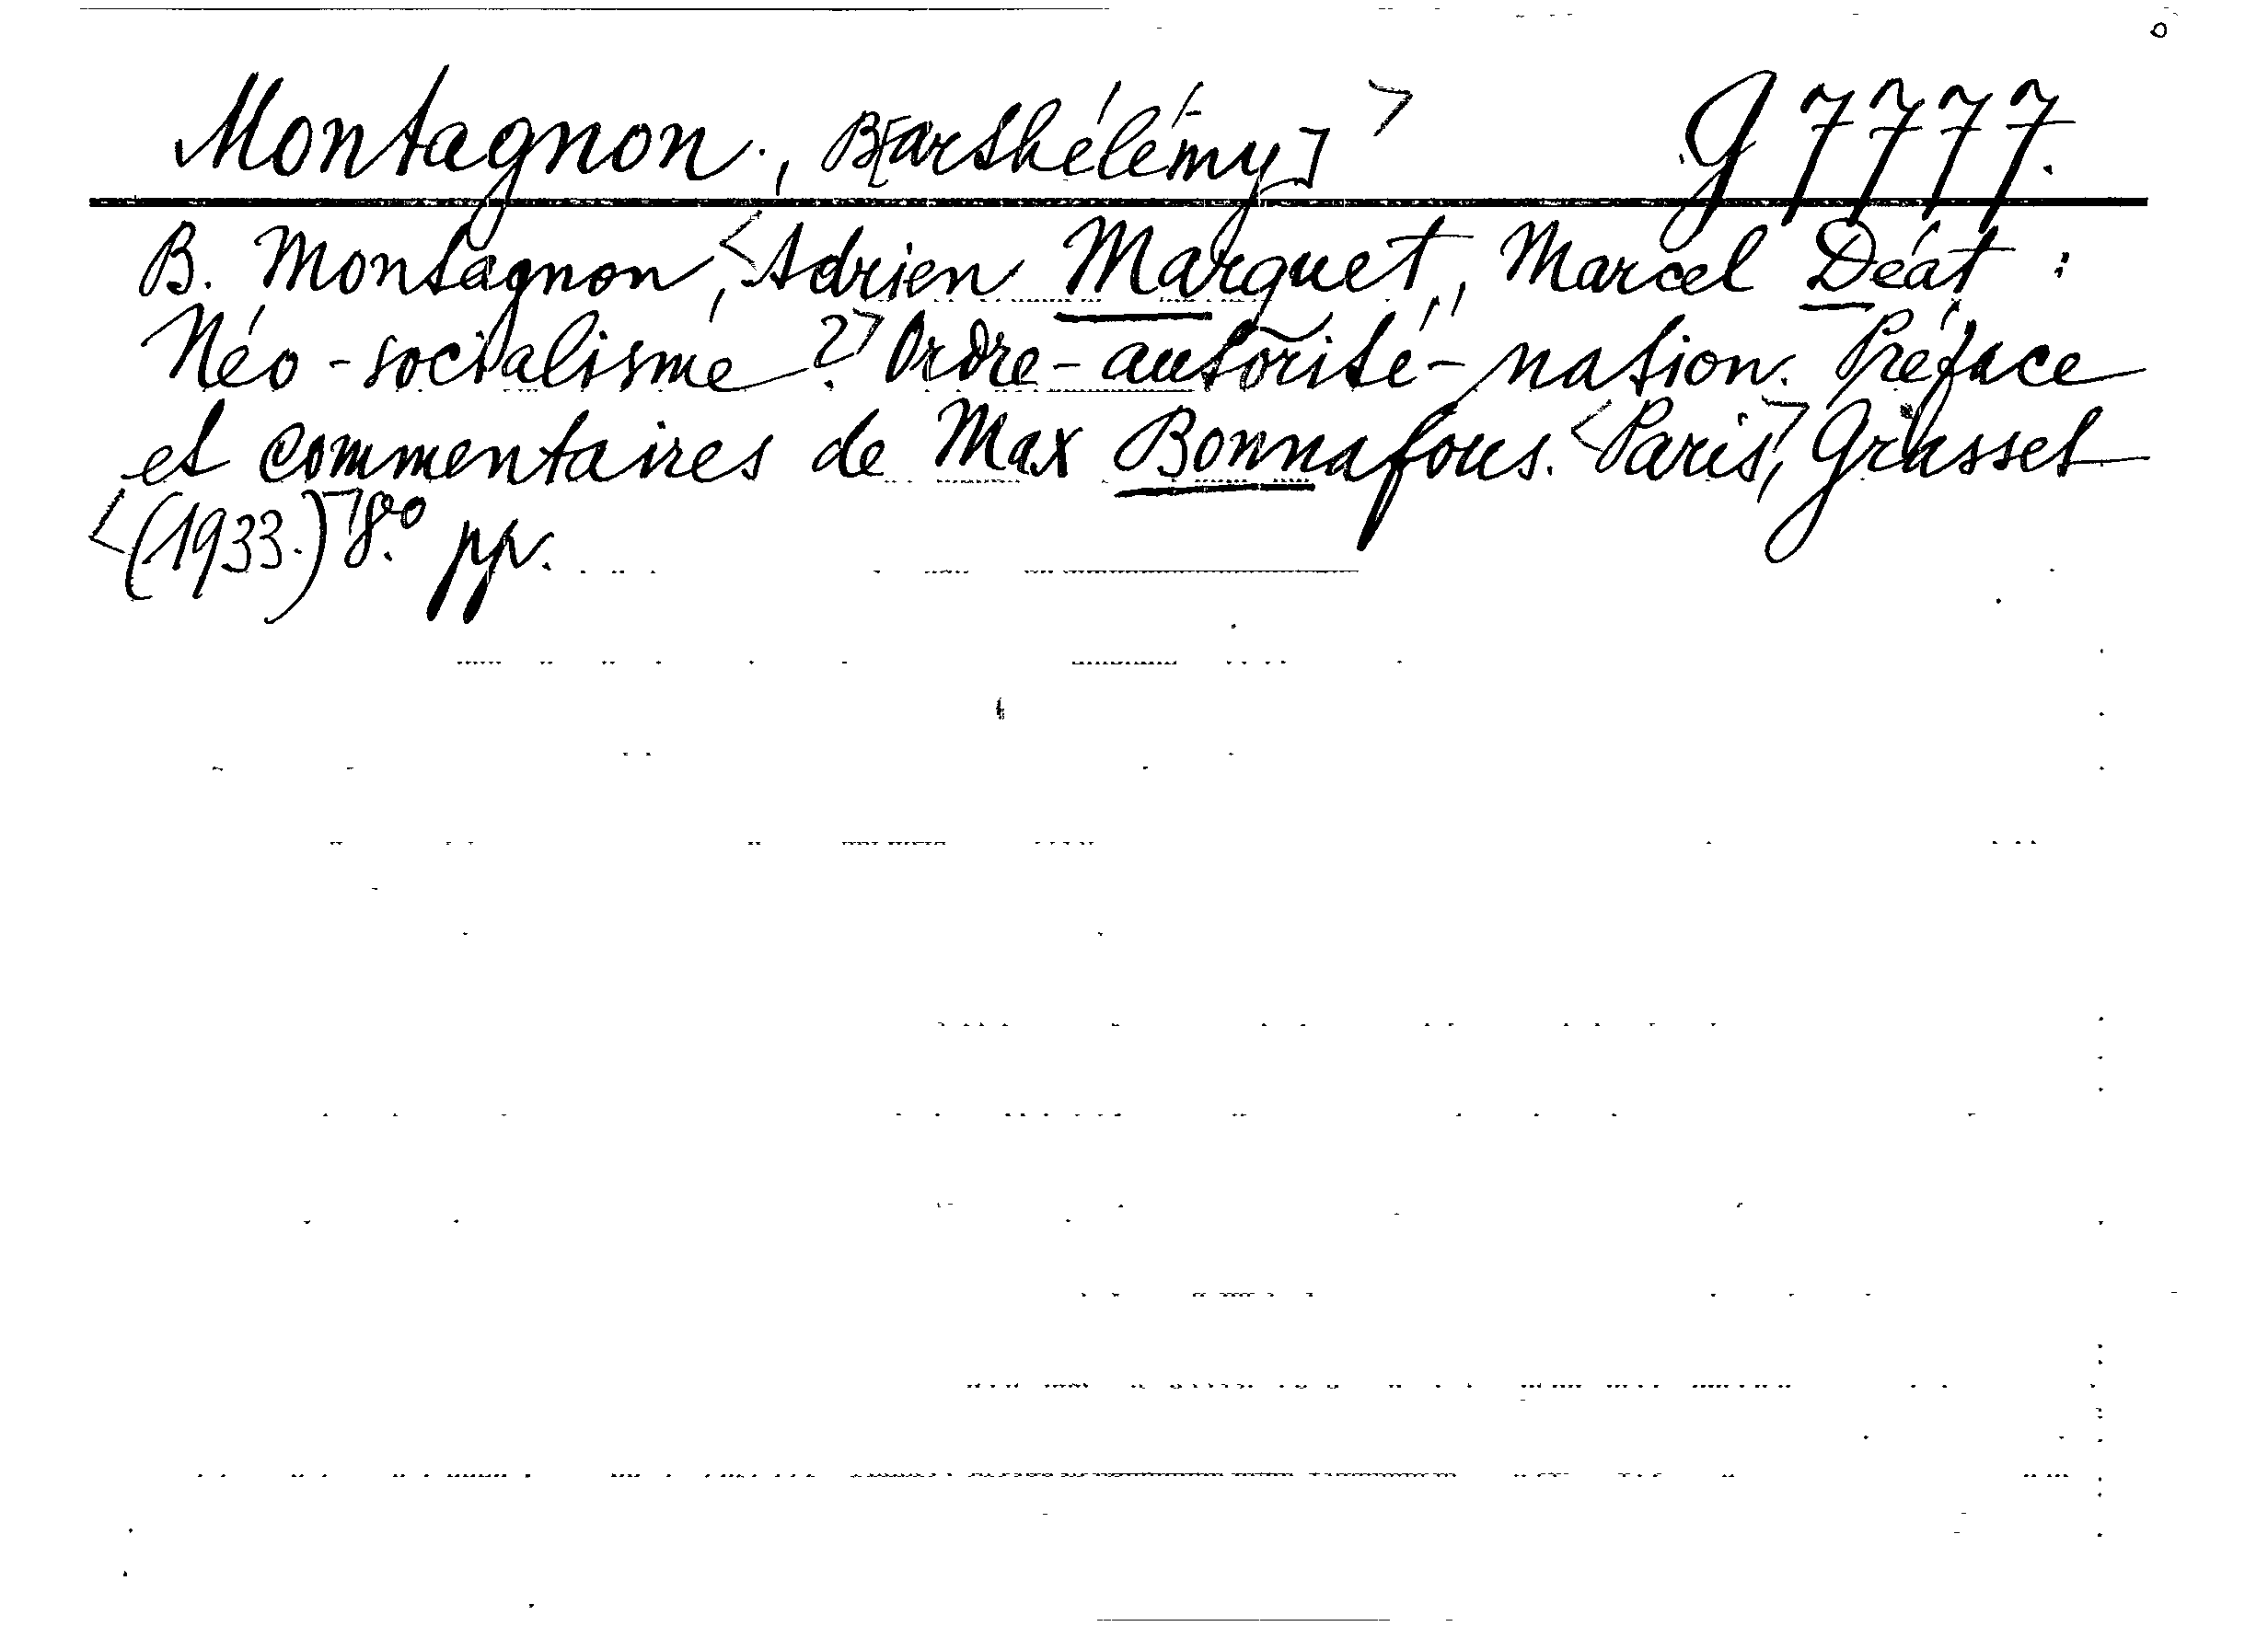 Montagnon., B[arthélémy]> G 7777.
B. Montagnon, <Adrien Marquet, Marcel Déat :
Néo-socialisme ?> Ordre-autorité-nation. Préface
et commentaires de Max Bonnafous. <Paris>, Grasset
<(1933.)> 8.° pp.